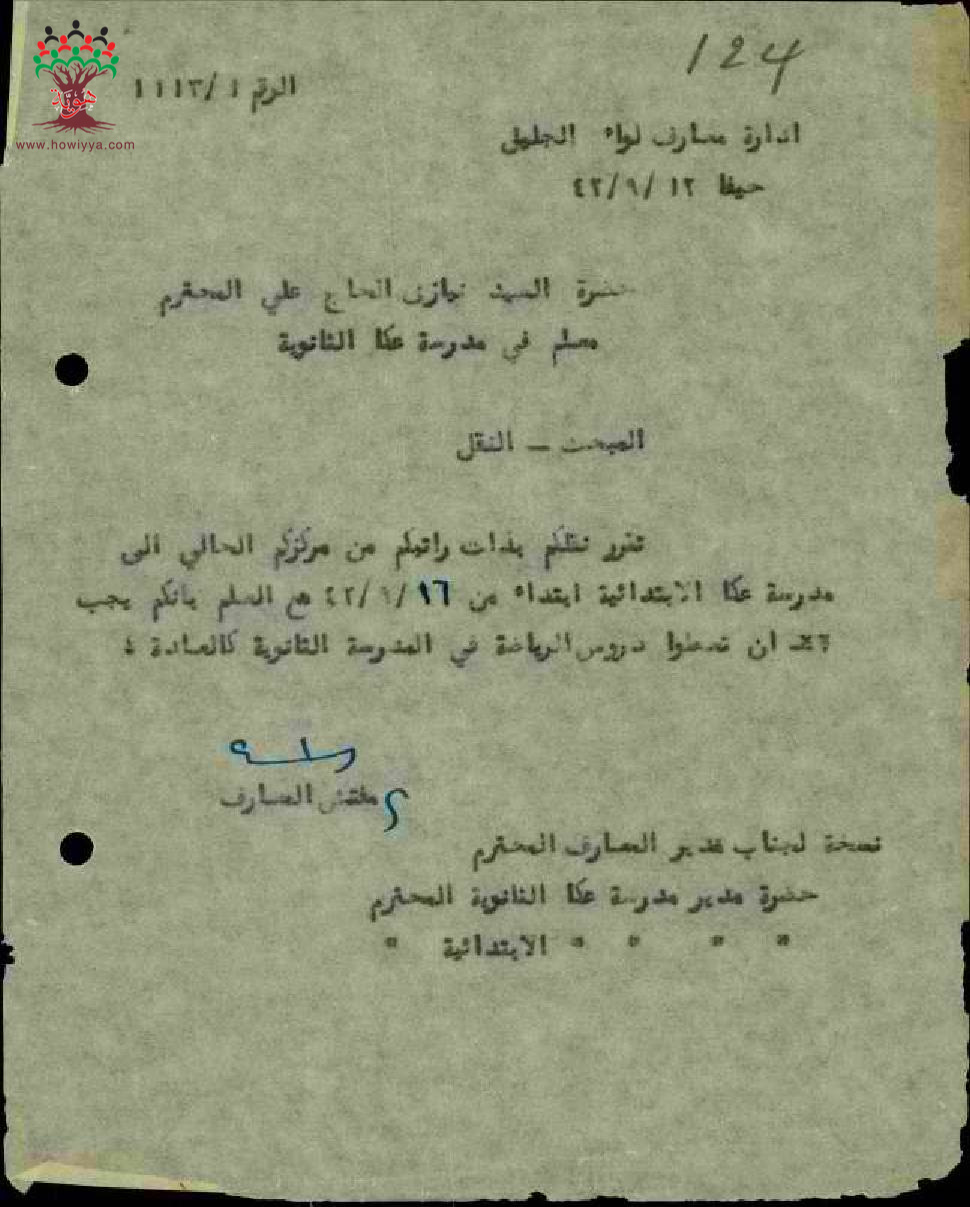 124
هوية
www.howiyya.com
الرقم ١ /١١١٣
ادارة معارف لواء الجليل
حيفا ١٢ /٩ /٤٢
حضرة السيد نيازى الحاج علي المحترم
معلم في مدرسة عكا الثانوية
المبحث ــ النقل
تقرر نقلكم بذات راتبكم من مركزكم الحالي الى
مدرسة عكا الابتدائية ابتداء من ١٦/٩/٤٢ مع العلم بانكم يجب
ان تعطوا دروس الرياضة في المدرسة الثانوية كالعادة ؛
مفتش المعارف
نسخة لجناب مدير المعارف المحترم
حضرة مدير مدرسة عكا الثانوية المحترم
" " " " الابتدائية "